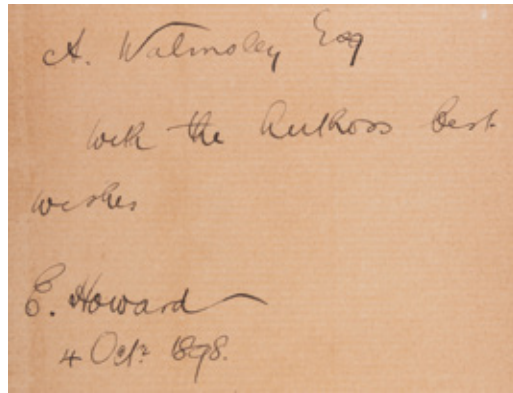 A. Walmsley Esq
with the Authors best
wishes
E. Howard
4 Octr 1898.